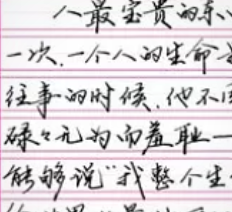 人最宝贵的东
一次.一个人的生命
往事的时候,他不
碌々无为而羞耻一
能够说“我整个生